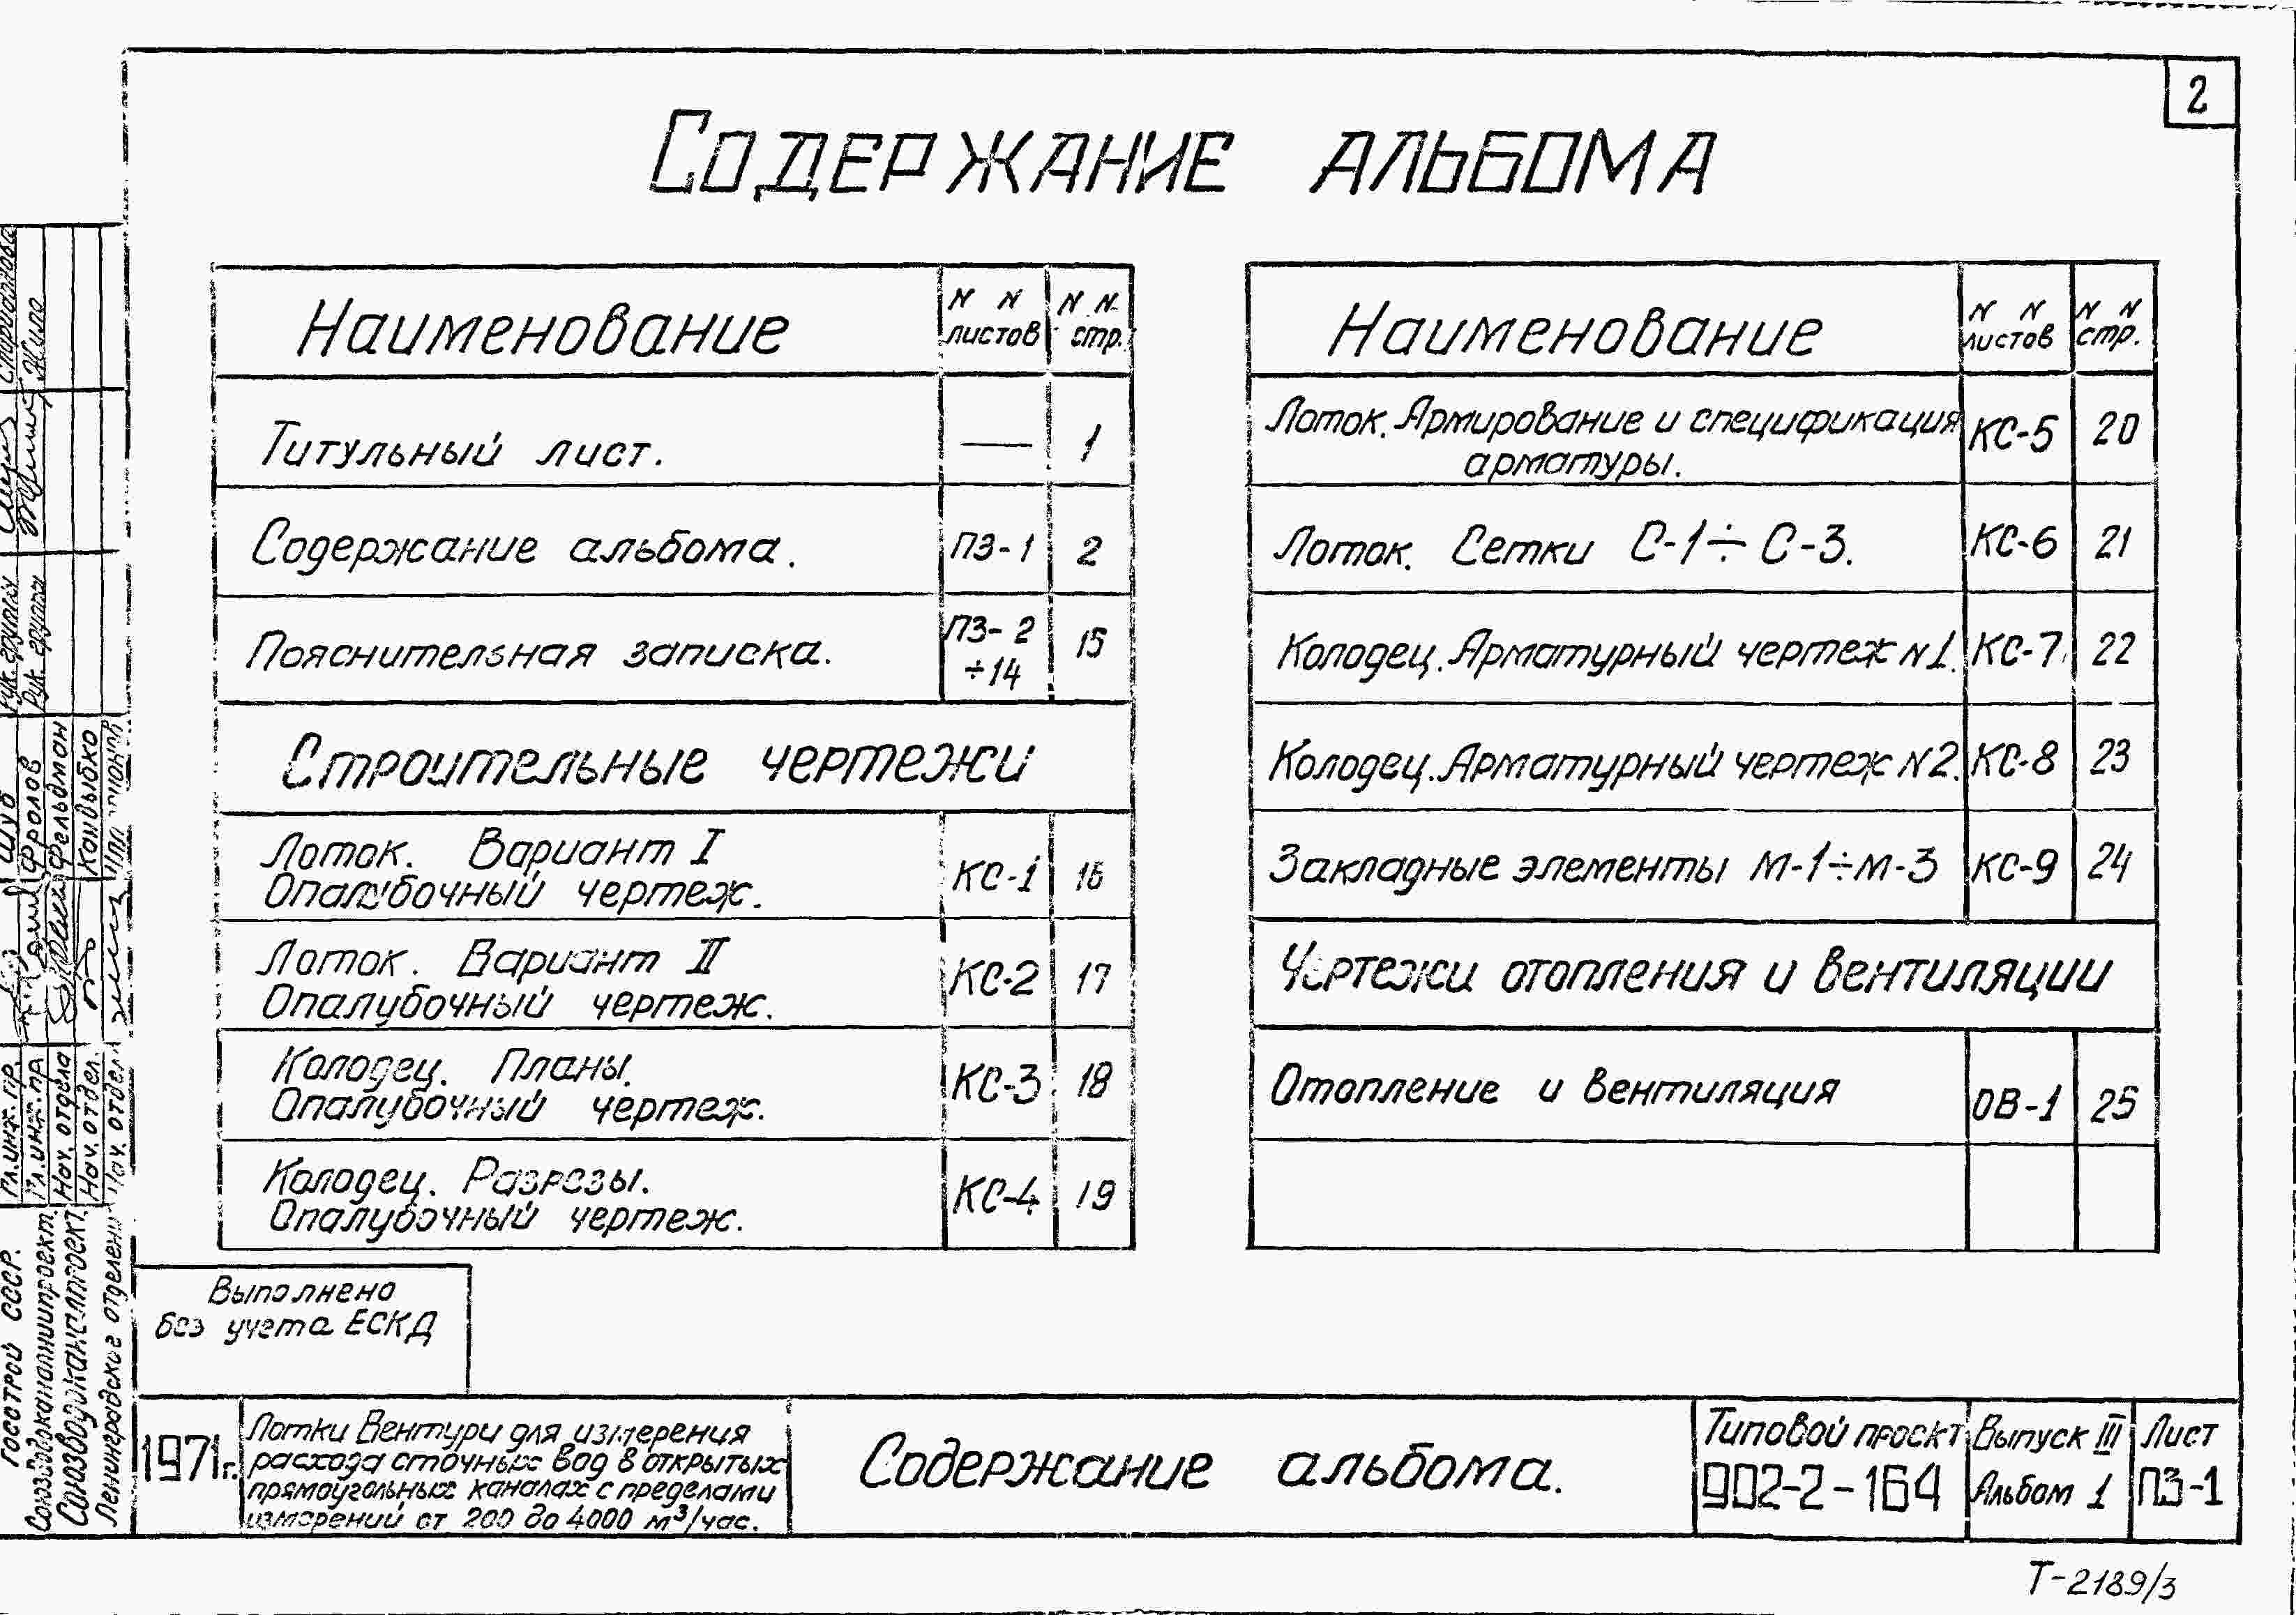 2
Содержание альбома
Наименование
N N листов
N N стр.
Титульный лист. — 1
Содержание альбома. ПЗ-1 2
Пояснительная записка. ПЗ-2 ÷14 15
Строительные чертежи
Лоток. Вариант I
Опалубочный чертеж. КС-1 16
Лоток. Вариант II
Опалубочный чертеж. КС-2 17
Колодец. Планы.
Опалубочный чертеж. КС-3 18
Колодец. Разрезы.
Опалубочный чертеж. КС-4 19
Наименование
N N листов
N N стр.
Лоток. Армирование и спецификация
арматуры. КС-5 20
Лоток. Сетки С-1÷С-3. КС-6 21
Колодец. Арматурный чертеж N1. КС-7 22
Колодец. Арматурный чертеж N2. КС-8 23
Закладные элементы М-1÷М-3 КС-9 24
Чертежи отопления и вентиляции
Отопление и вентиляция ОВ-1 25
Выполнено
без учета ЕСКД
1971г.
Лотки Вентури для измерения
расхода сточных вод в открытых
прямоугольных каналах с пределами
измерений от 200 до 4000 м³/час.
Содержание альбома.
Типовой проект
902-2-164
Выпуск III
Альбом 1
Лист
ПЗ-1
Т-2189/3
Госстрой СССР.
Союзводоканалниипроект.
Союзводоканалпроект.
Ленинградское отделение
Гл. инж. пр. Шуб Рук. группы
Гл. инж. пр. Фролов Рук. группы Жила
Нач. отдела Фельдман
Нач. отдел. Кандыбко
Нач. отдел.